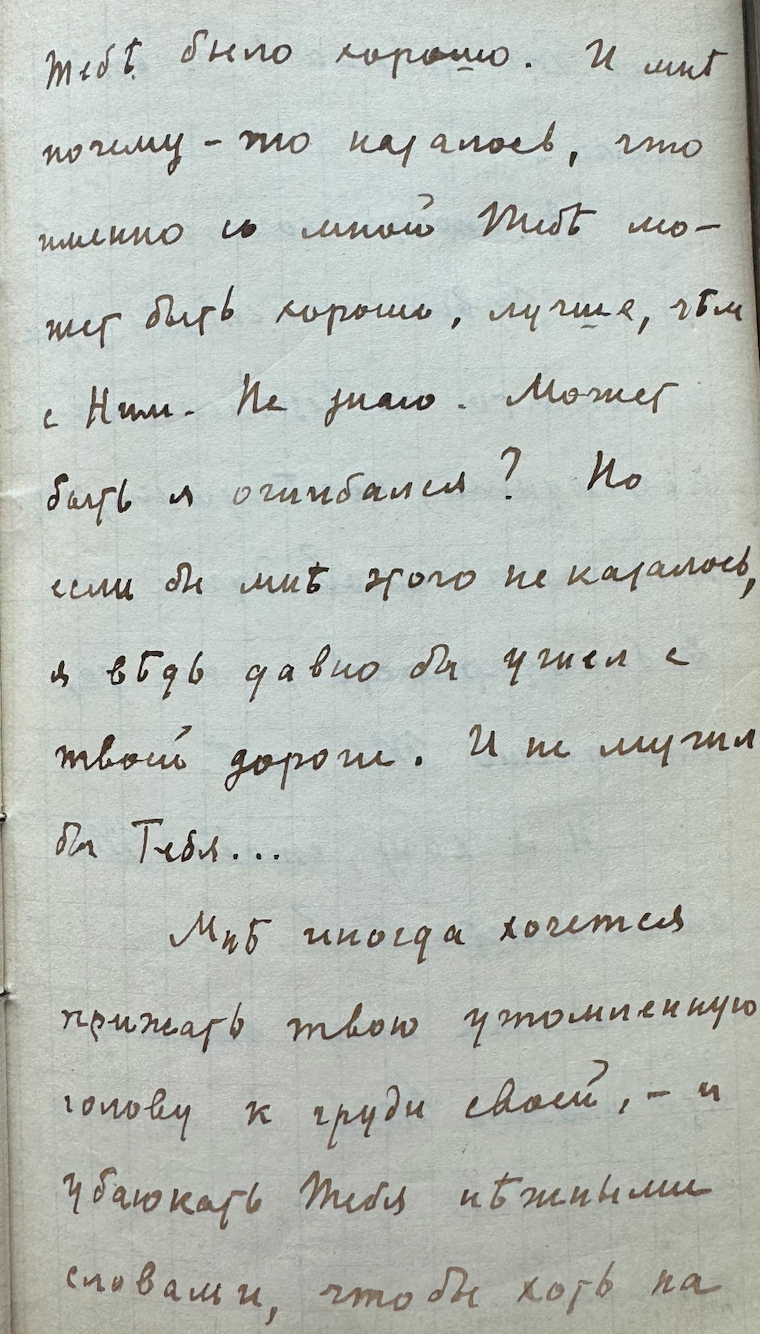 Тебѣ было хорошо. И мнѣ
почему-то казалось, что
именно со мной Тебѣ мо-
жет быть хорошо, лучше, чѣм
с Ним. Не знаю. Может
быть я ошибался? Но
если бы мнѣ этого не казалось,
я вѣдь давно бы ушел с
твоей дороги. И не мучил
бы Тебя...
Мнѣ иногда хочется
прижать твою утомленную
голову к груди своей, - и
убаюкать Тебя нѣжными
словами, чтобы хоть на